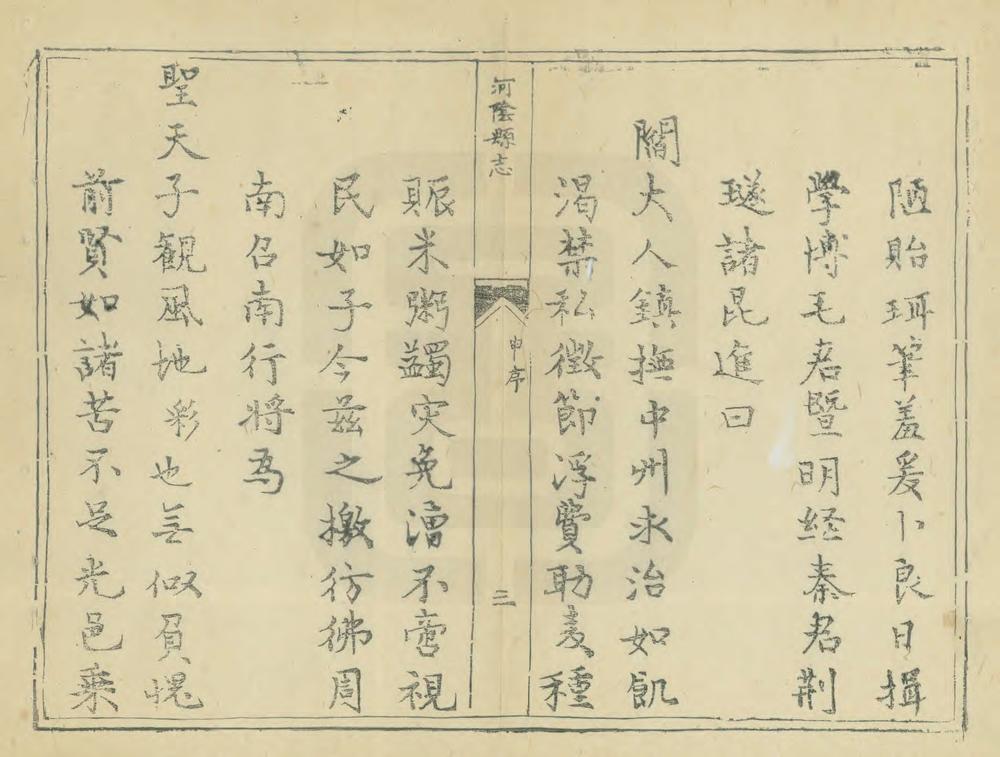 陋貽珥筆羞爰卜良日揖
學博毛君暨明經秦君荆
璲諸昆進曰
閻大人鎮撫中州求治如飢
渴禁私徵節浮費助麦種
河陰縣志
申序
三
賑米粥蠲灾免漕不啻視
民如子今兹之檄彷彿周
南召南行将為
聖天子觀風地彩也無似負愧
前賢如諸苦不足光邑乗